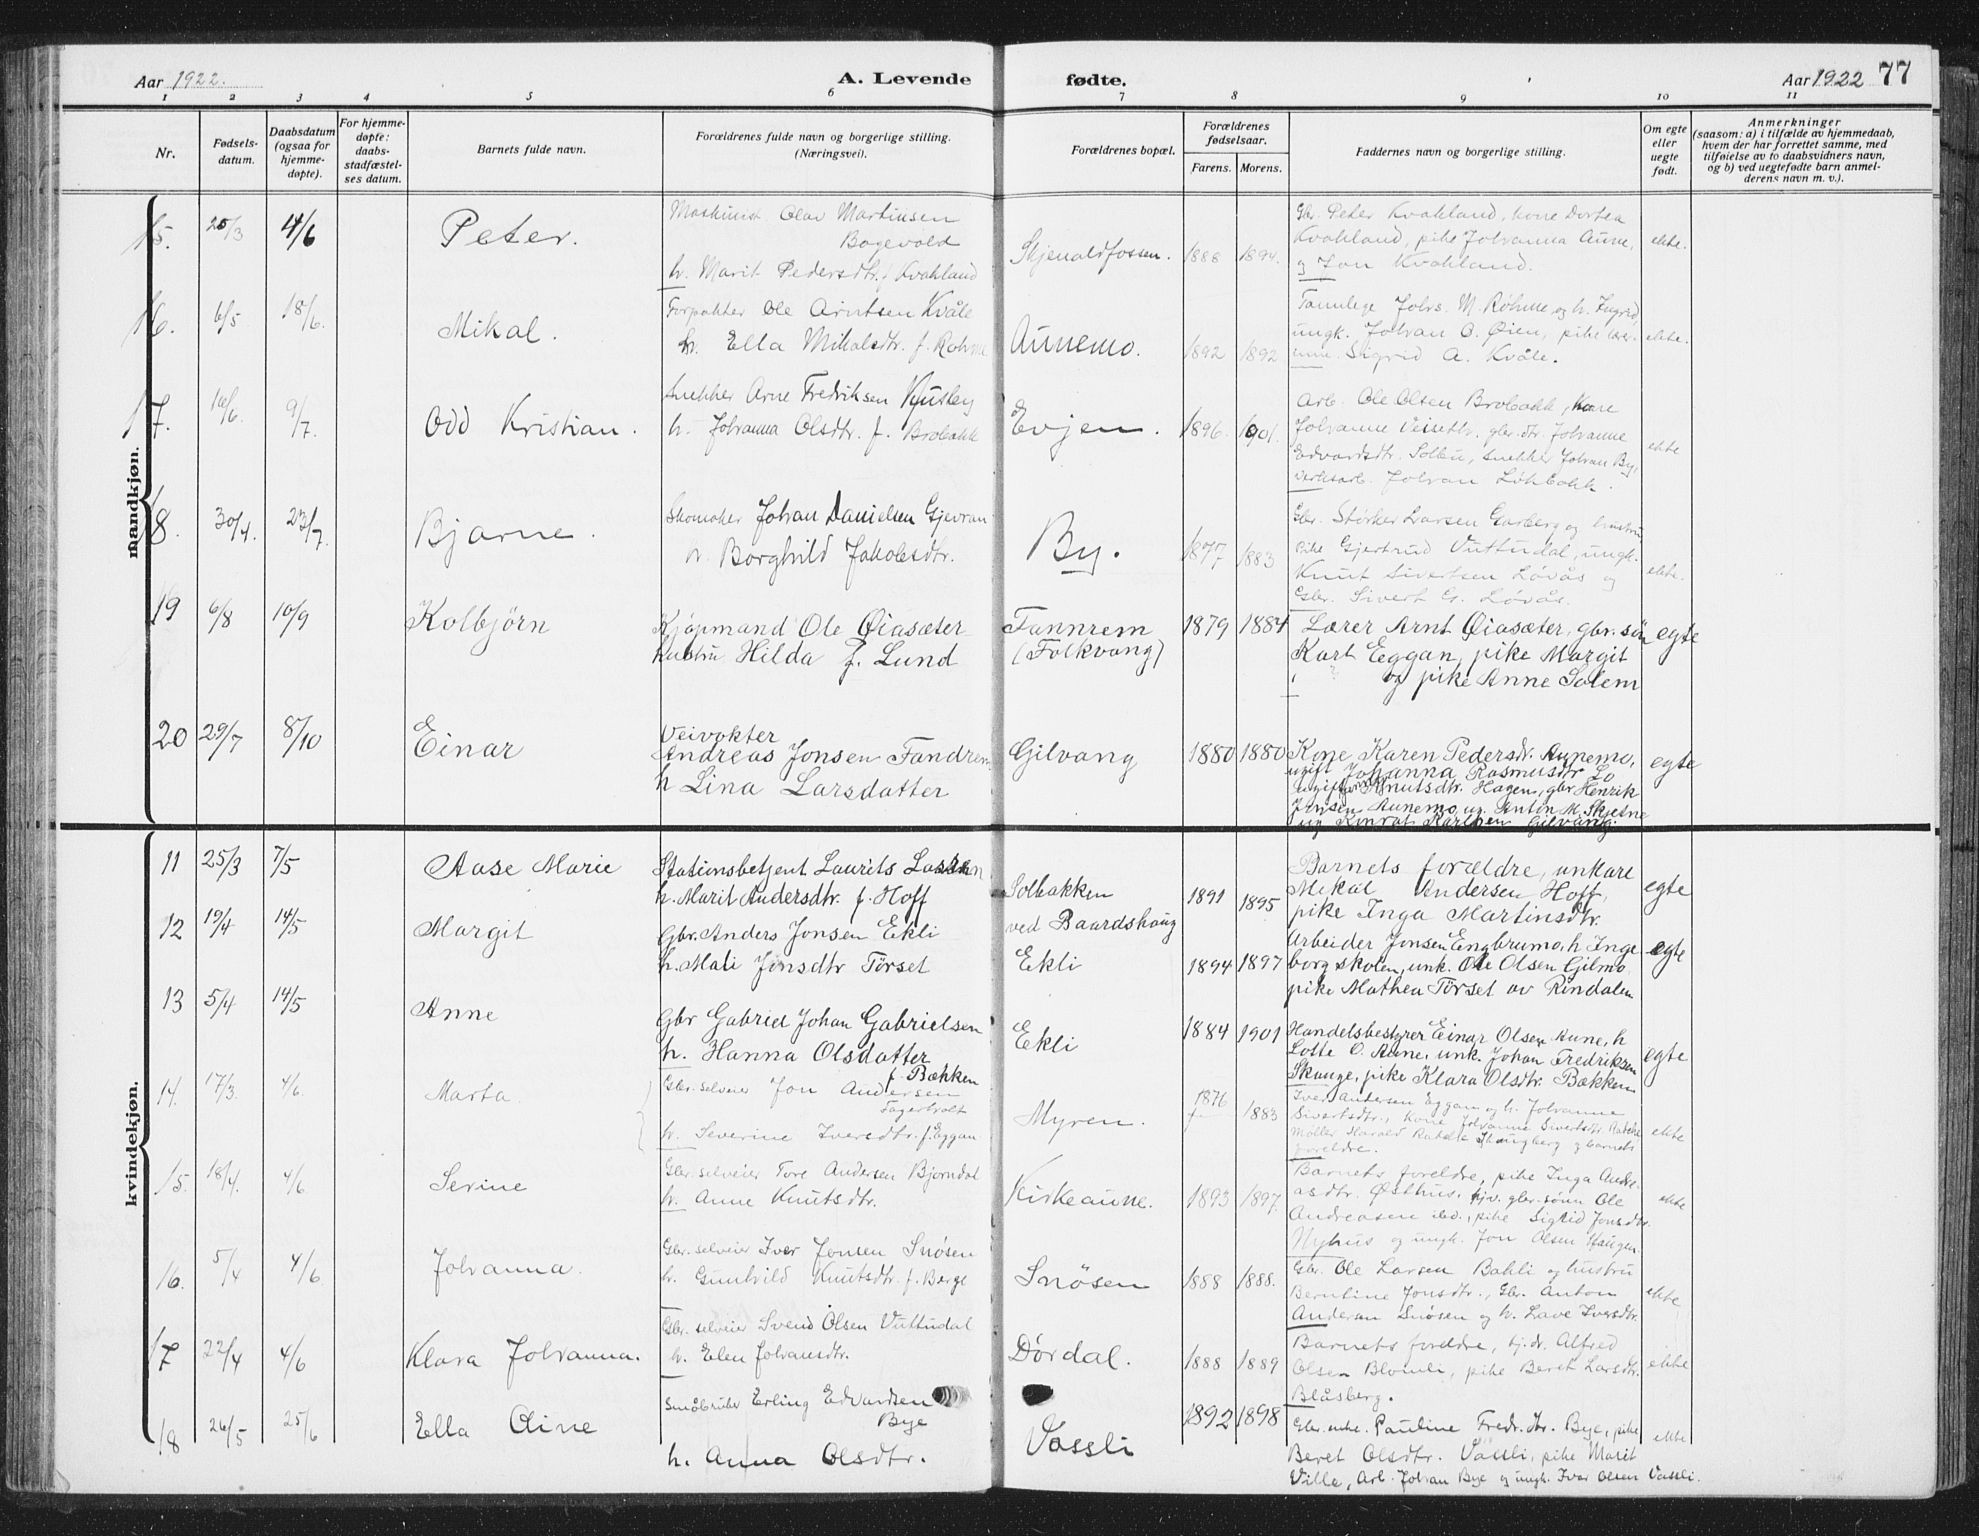 Aar 1922.
A. Levende
fødte.
Aar 1922 77
1 2 3 4 5 6 7 8 9 10 11
Nr.
Fødsels-
datum.
Daabsdatum
(ogsaa for
hjemme-
døpte).
For hjemme-
døpte:
daabs-
stadfæstel-
ses datum.
Barnets fulde navn.
Forældrenes fulde navn og borgerlige stilling.
(Næringsvei).
Forældrenes bopæl.
Forældrenes
fødselsaar.
Farens. Morens.
Faddernes navn og borgerlige stilling.
Om egte
eller
uegte
født.
Anmerkninger
(saasom: a) i tilfælde av hjemmedaab,
hvem der har forrettet samme, med
tilføielse av to daabsvidners navn,
og b) ved uegtefødte barn anmel-
derens navn m. v.).
mandkjøn.
15. 25/3 4/6
Peter.
Maskinist Olav Martinsen
Bagevold
h. Marit Pedersdtr. f. Kvakland
Skjenaldfossen. 1888 1894.
Gbr. Peter Kvakland, kone Dortea
Kvakland, pike Johanna Aune,
og Jon Kvakland.
ekte.
16. 6/5 18/6.
Mikal.
Forpakter Ole Arntsen Kvåle
h. Ella Mikalsdtr. f. Rohme
Aunemo. 1892 1892
Tannlege Johs. M. Röhme og h. Ingrid,
ungk. Johan O. Øien, pike lærer-
inne Sigrid A. Kvåle.
ekte.
17. 16/6. 9/7.
Odd Kristian.
Snekker Arne Fredriksen
h. Johanna Olsdtr. f. Brobakk
Evjen. 1896. 1901.
Arb. Ole Olsen Brobakk, kone
Johanne Veisettr. gbr.dtr. Johanne
Edvardsdtr. Solbu, snekker Johan By,
verksarb. Johan Løkbakk.
ekte
18. 30/4. 23/7.
Bjarne.
Skomaker Johan Danielsen Gjevran
h. Borghild Jakobsdtr.
By. 1877 1883
Gbr. Størker Larsen Garberg og hustru
pike Gjertrud Vuttudal, ungk.
Knut Sivertsen Løvås og
Gbr. Sivert G. Løvås.
ekte.
19 6/8 10/9
Kolbjörn
Kjöpmand Ole Øiasæter
hustru Hilda f. Lund
Fannrem
(Folkvang)
1879 1884
Lærer Arnt Øiasæter, gbr. søn
Kart Eggan, pike Margit
og pike Anne Solem
egte
20 29/7 8/10
Einar
Veivokter
Andreas Jonsen Fandrem
h Lina Larsdatter
Gilvang 1880 1880
Kone Karen Pedersdr. Aunemo,
ugift Johanna Rasmusdtr Lo
ugift Knutsdtr. Hagen, gbr Henrik
Jonsen Aunemo, ug. Anton M. Skjetne
ug Konrat Karlsen Gilvang.
egte
kvindekjøn.
11 25/3 7/5
Aase Marie
Stationsbetjent Laurits Larsen
h. Marit Andersdtr. f. Hoff
Solbakken
ved Baardshaug
1891 1895
Barnets forældre, unkare
Mikal Andersen Hoff,
pike Inga Martinsdtr.
egte
12 19/4 14/5
Margit
Gbr. Anders Jonsen Ekli
h. Mali Jonsdtr Törset
Ekli 1894 1897
Arbeider Jonsen Engbrumo, h Inge
borg skolen, unk. Ole Olsen Gilmo
pike Mathea Törset av Rindalen
egte
13 5/4 14/5
Anne
Gbr Gabriel Johan Gabrielsen
h. Hanna Olsdatter
f. Bækken
Ekli 1884 1901
Handelsbestyrer Einar Olsen Aune, h
Lotte O. Aune, unk. Johan Fredriksen
Skauge, pike Klara Olsdtr. Bækken
egte
14. 17/3. 4/6.
Marta.
Gbr. selveier Jon Andersen
Fagerholt
h. Severine Iversdtr. f. Eggan
Myren. 1876 1883
Iver Andersen Eggan og h. Johanne
Sivertsdtr., kone Johanne Sivertsdtr.
Møller Harald og barnets
foreldre.
ekte
15. 18/4. 4/6
Serine
Gbr. selveier Tore Andersen Bjørndal
h. Anne Knutsdtr.
Kirkeaune. 1893 1897.
Barnets foreldre, pike Inga Andre-
asdtr. Østhus, gbr. sønn Ole
Andreasen ibd., pike Sigrid Jonsdtr.
Nyhus og ungk. Jon Olsen Haugen.
ekte
16. 5/4 4/6
Johanna.
Gbr. selveier Iver Jonsen Snøsen
h. Gunhild Knutsdtr. f. Berge
Snøsen 1888 1888.
Gbr. Ole Larsen Bahli og hustru
Berntine Jonsdtr., Gbr. Anton
Andersen Snøsen og h. Lave Iversdtr.
ekte
17 22/4 4/6
Klara Johanna.
Gbr. selveier Svend Olsen Vuttudal
h. Elen Johansdtr.
Dørdal. 1888 1889
Barnets foreldre, Alfred
Olsen Blomli, pike Beret Larsdtr.
Blåsberg.
ekte
18 26/5 25/6
Ella Oline
Småbruker Erling Edvardsen
Bye
h. Anna Olsdtr.
Vassli 1892 1898
Gbr. enke Pauline Fredr.dtr. Bye, pike
Beret Olsdtr. Vassli, pike Marit
Ville, Arb. Johan Bye og ungk. Ivar Olsen Vassli.
ekte